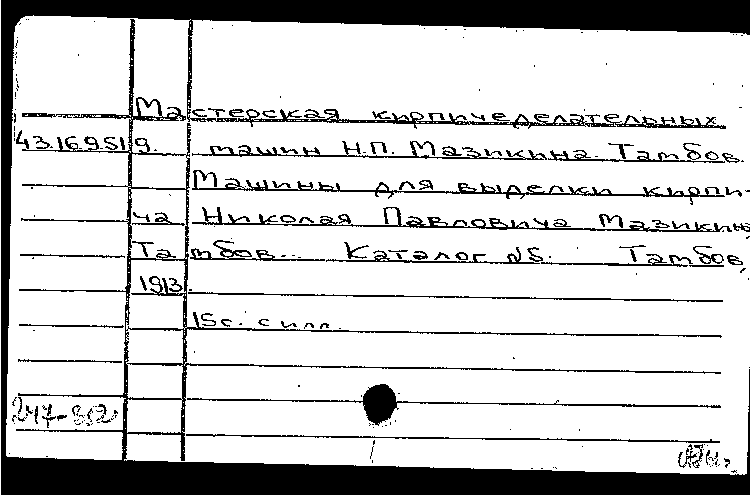 Мастерская кирпичеделательных
43.16951 9. машин Н.П. Мазикина. Тамбов.
Машины для выделки кирпи-
ча Николая Павловича Мазикина,
Тамбов... Каталог №5. Тамбов,
1913.
15с. с илл.
247-352